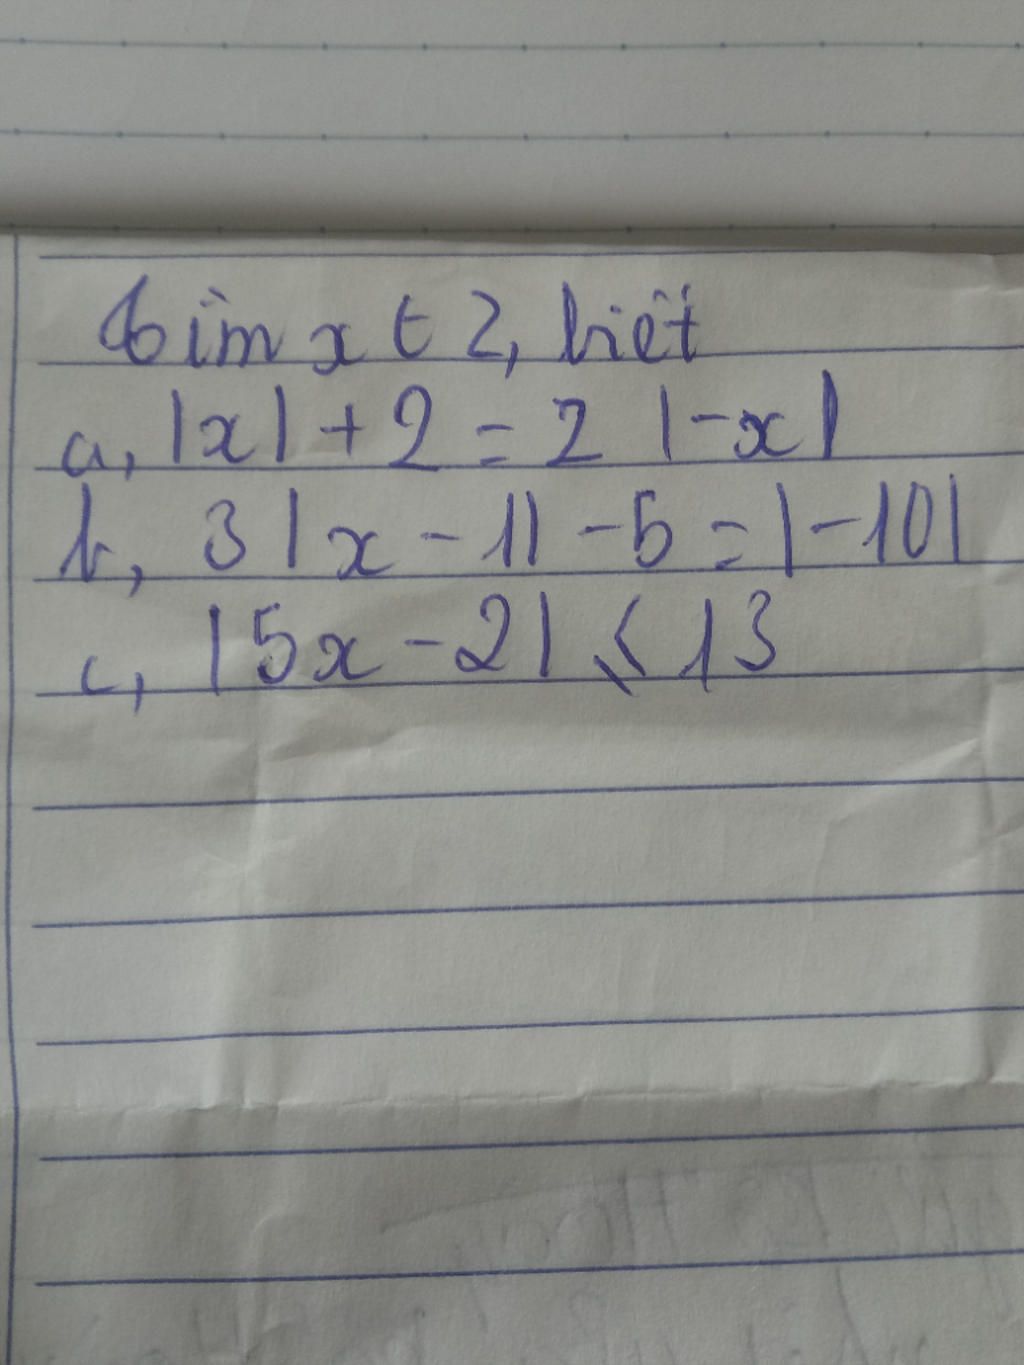 Tìm x ∈ Z, biết
a, |x| + 2 = 2 |-x|
b, 3 |x - 1| - 5 = |-10|
c, |5x - 2| ≤ 13